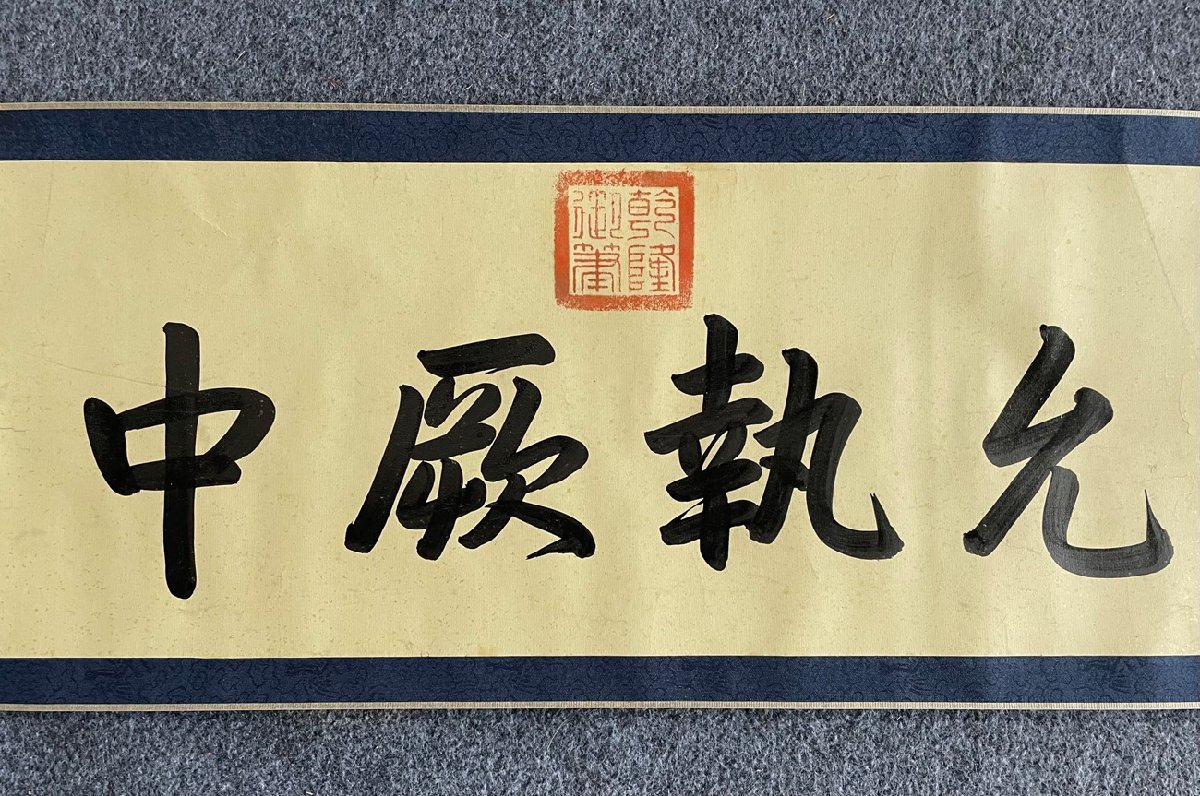 乾隆御筆
允執厥中